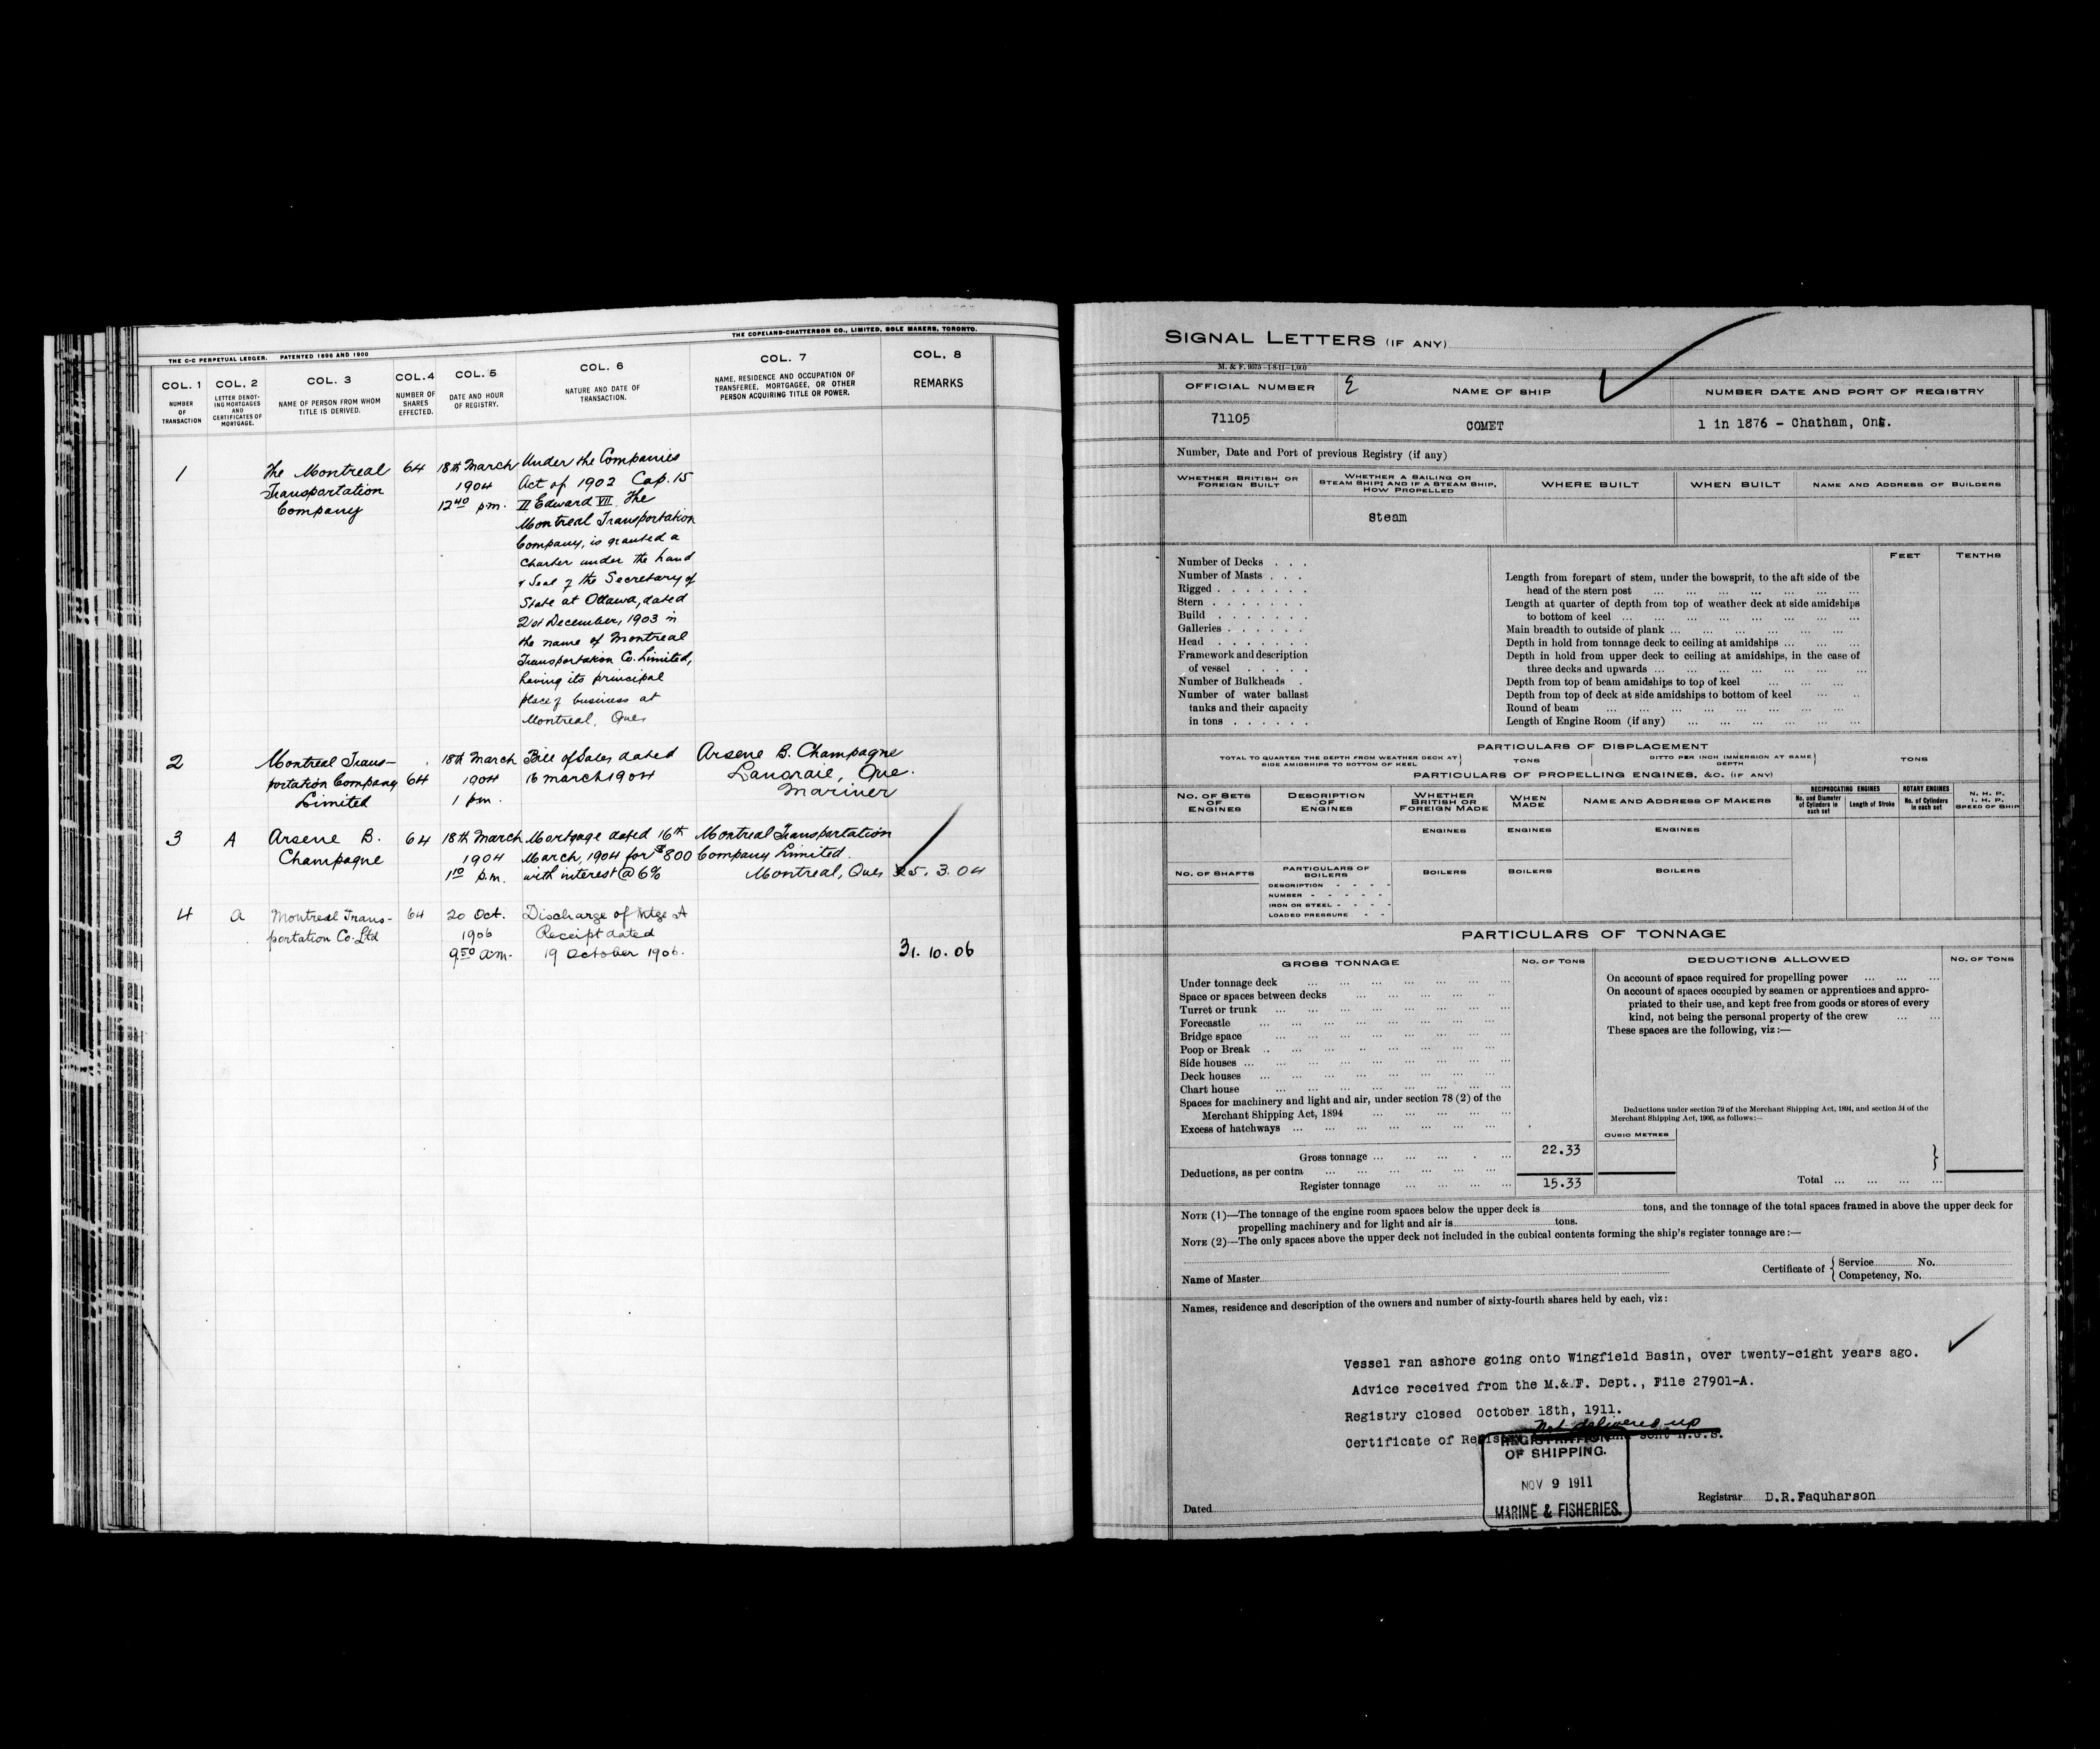 THE C-C PERPETUAL LEDGER. PATENTED 1896 AND 1900
THE COPELAND-CHATTERSON CO., LIMITED, SOLE MAKERS, TORONTO.
COL. 1
NUMBER
OF
TRANSACTION
COL. 2
LETTER DENOT-
ING MORTGAGES
AND
CERTIFICATES OF
MORTGAGE.
COL. 3
NAME OF PERSON FROM WHOM
TITLE IS DERIVED.
COL. 4
NUMBER OF
SHARES
EFFECTED.
COL. 5
DATE AND HOUR
OF REGISTRY.
COL. 6
NATURE AND DATE OF
TRANSACTION.
COL. 7
NAME, RESIDENCE AND OCCUPATION OF
TRANSFEREE, MORTGAGEE, OR OTHER
PERSON ACQUIRING TITLE OR POWER.
COL. 8
REMARKS
1
The Montreal
Transportation
Company
64
18th March
1904
12 40 p.m.
Under the Companies
Act of 1902 Cap. 15
II Edward VII. The
Montreal Transportation
Company, is granted a
Charter under the hand
& Seal of the Secretary of
State at Ottawa, dated
21st December, 1903 in
the name of Montreal
Transportation Co. Limited,
having its principal
place of business at
Montreal, Que,
2
Montreal Trans-
portation Company
Limited
64
18th March
1904
1 pm.
Bill of Sales dated
16 March 1904
Arsene B. Champagne
Lanoraie, Que.
Mariner
3
A
Arsene B.
Champagne
64
18th March
1904
1 10 p.m.
Mortgage dated 16th
March, 1904 for $800
with interest @ 6%
Montreal Transportation
Company Limited.
Montreal, Que,
25. 3. 04
4
A
Montreal Trans-
portation Co. Ltd
64
20 Oct.
1906
9 50 a.m.
Discharge of Mtge A
Receipt dated
19 October 1906.
31. 10. 06
SIGNAL LETTERS (IF ANY)
M. & F. 9075-1-8-11-1,000
OFFICIAL NUMBER
71105
NAME OF SHIP
COMET
NUMBER DATE AND PORT OF REGISTRY
1 in 1876 - Chatham, Ont.
Number, Date and Port of previous Registry (if any)
WHETHER BRITISH OR
FOREIGN BUILT
WHETHER A SAILING OR
STEAM SHIP; AND IF A STEAM SHIP,
HOW PROPELLED
Steam
WHERE BUILT
WHEN BUILT
NAME AND ADDRESS OF BUILDERS
Number of Decks . . .
Number of Masts . . .
Rigged . . . . . . .
Stern . . . . . . .
Build . . . . . . .
Galleries . . . . . .
Head . . . . . . .
Framework and description
of vessel . . . . .
Number of Bulkheads .
Number of water ballast
tanks and their capacity
in tons . . . . . .
FEET
TENTHS
Length from forepart of stem, under the bowsprit, to the aft side of the
head of the stern post ...
Length at quarter of depth from top of weather deck at side amidships
to bottom of keel ...
Main breadth to outside of plank ...
Depth in hold from tonnage deck to ceiling at amidships ...
Depth in hold from upper deck to ceiling at amidships, in the case of
three decks and upwards ...
Depth from top of beam amidships to top of keel ...
Depth from top of deck at side amidships to bottom of keel ...
Round of beam ...
Length of Engine Room (if any) ...
PARTICULARS OF DISPLACEMENT
TOTAL TO QUARTER THE DEPTH FROM WEATHER DECK AT
SIDE AMIDSHIPS TO BOTTOM OF KEEL
TONS
DITTO PER INCH IMMERSION AT SAME
DEPTH
TONS
PARTICULARS OF PROPELLING ENGINES, &C. (IF ANY)
NO. OF SETS
OF
ENGINES
DESCRIPTION
OF
ENGINES
WHETHER
BRITISH OR
FOREIGN MADE
WHEN
MADE
NAME AND ADDRESS OF MAKERS
RECIPROCATING ENGINES
No. and Diameter
of Cylinders in
each set
Length of Stroke
ROTARY ENGINES
No. of Cylinders
in each set
N. H. P.
I. H. P.
SPEED OF SHIP
ENGINES
ENGINES
ENGINES
NO. OF SHAFTS
PARTICULARS OF
BOILERS
BOILERS
BOILERS
BOILERS
DESCRIPTION
NUMBER
IRON OR STEEL
LOADED PRESSURE
PARTICULARS OF TONNAGE
GROSS TONNAGE
NO. OF TONS
DEDUCTIONS ALLOWED
NO. OF TONS
Under tonnage deck ...
Space or spaces between decks ...
Turret or trunk ...
Forecastle ...
Bridge space ...
Poop or Break ...
Side houses ...
Deck houses ...
Chart house ...
Spaces for machinery and light and air, under section 78 (2) of the
Merchant Shipping Act, 1894 ...
Excess of hatchways ...
Gross tonnage ... 22.33
Deductions, as per contra ...
Register tonnage ... 15.33
On account of space required for propelling power ...
On account of spaces occupied by seamen or apprentices and appro-
priated to their use, and kept free from goods or stores of every
kind, not being the personal property of the crew ...
These spaces are the following, viz:—
Deductions under section 79 of the Merchant Shipping Act, 1894, and section 54 of the
Merchant Shipping Act, 1906, as follows:—
CUBIC METRES
Total ...
NOTE (1)—The tonnage of the engine room spaces below the upper deck is tons, and the tonnage of the total spaces framed in above the upper deck for
propelling machinery and for light and air is tons.
NOTE (2)—The only spaces above the upper deck not included in the cubical contents forming the ship's register tonnage are:—
Name of Master
Certificate of { Service No.
Competency, No.
Names, residence and description of the owners and number of sixty-fourth shares held by each, viz:
Vessel ran ashore going onto Wingfield Basin, over twenty-eight years ago.
Advice received from the M.& F. Dept., File 27901-A.
Registry closed October 18th, 1911.
not delivered up
Certificate of Registry and sent R.G.S.
REGISTRATION
OF SHIPPING.
NOV 9 1911
MARINE & FISHERIES.
Dated
Registrar D.R.Faquharson